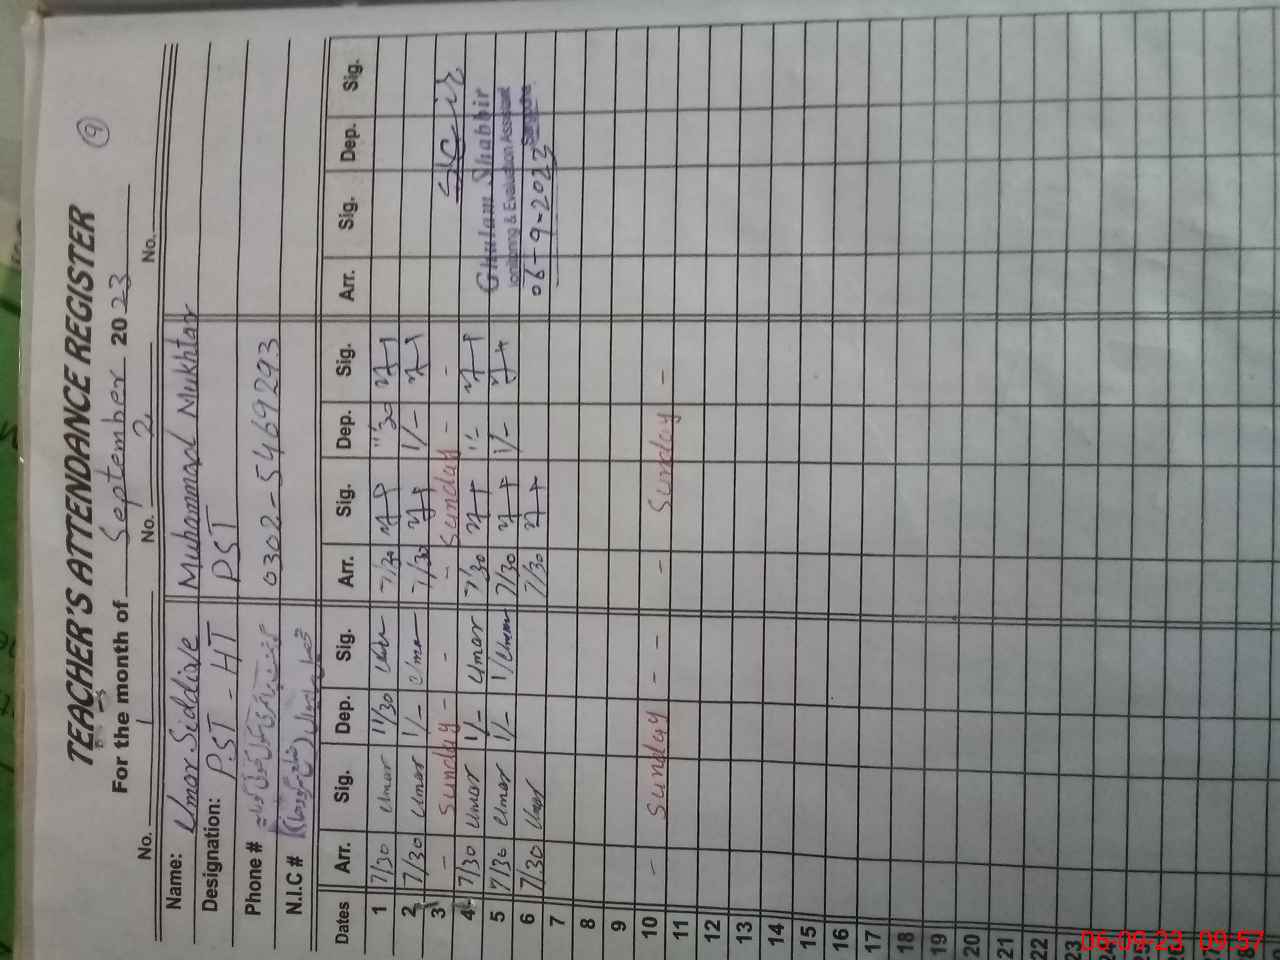 (9)
TEACHER'S ATTENDANCE REGISTER
For the month of September 2023
No. 1 No. 2 No.
Name: Umar Siddive Muhammad Mukhtar
Designation: PST - HT PST
Phone # 0302-5469293
N.I.C #
Dates Arr. Sig. Dep. Sig. Arr. Sig. Dep. Sig. Arr. Sig. Dep. Sig.
1 7/30 Umar 11/30 7/30 11/30
2 7/30 Umar 1/- Umar 7/30 1/-
3 - Sunday - - - Sunday - -
4 7/30 Umar 1/- Umar 7/30 1/- Ghulam Shabbir
5 7/30 Umar 1/- Umar 7/30 1/- onitoring & Evaluation Assistant
6 7/30 Umar 7/30 06-9-2023
7
8
9
10 - Sunday - - - Sunday -
11
12
13
14
15
16
17
18
19
20
21
22
23
24
25
26
27
28
06-09-23 09:57